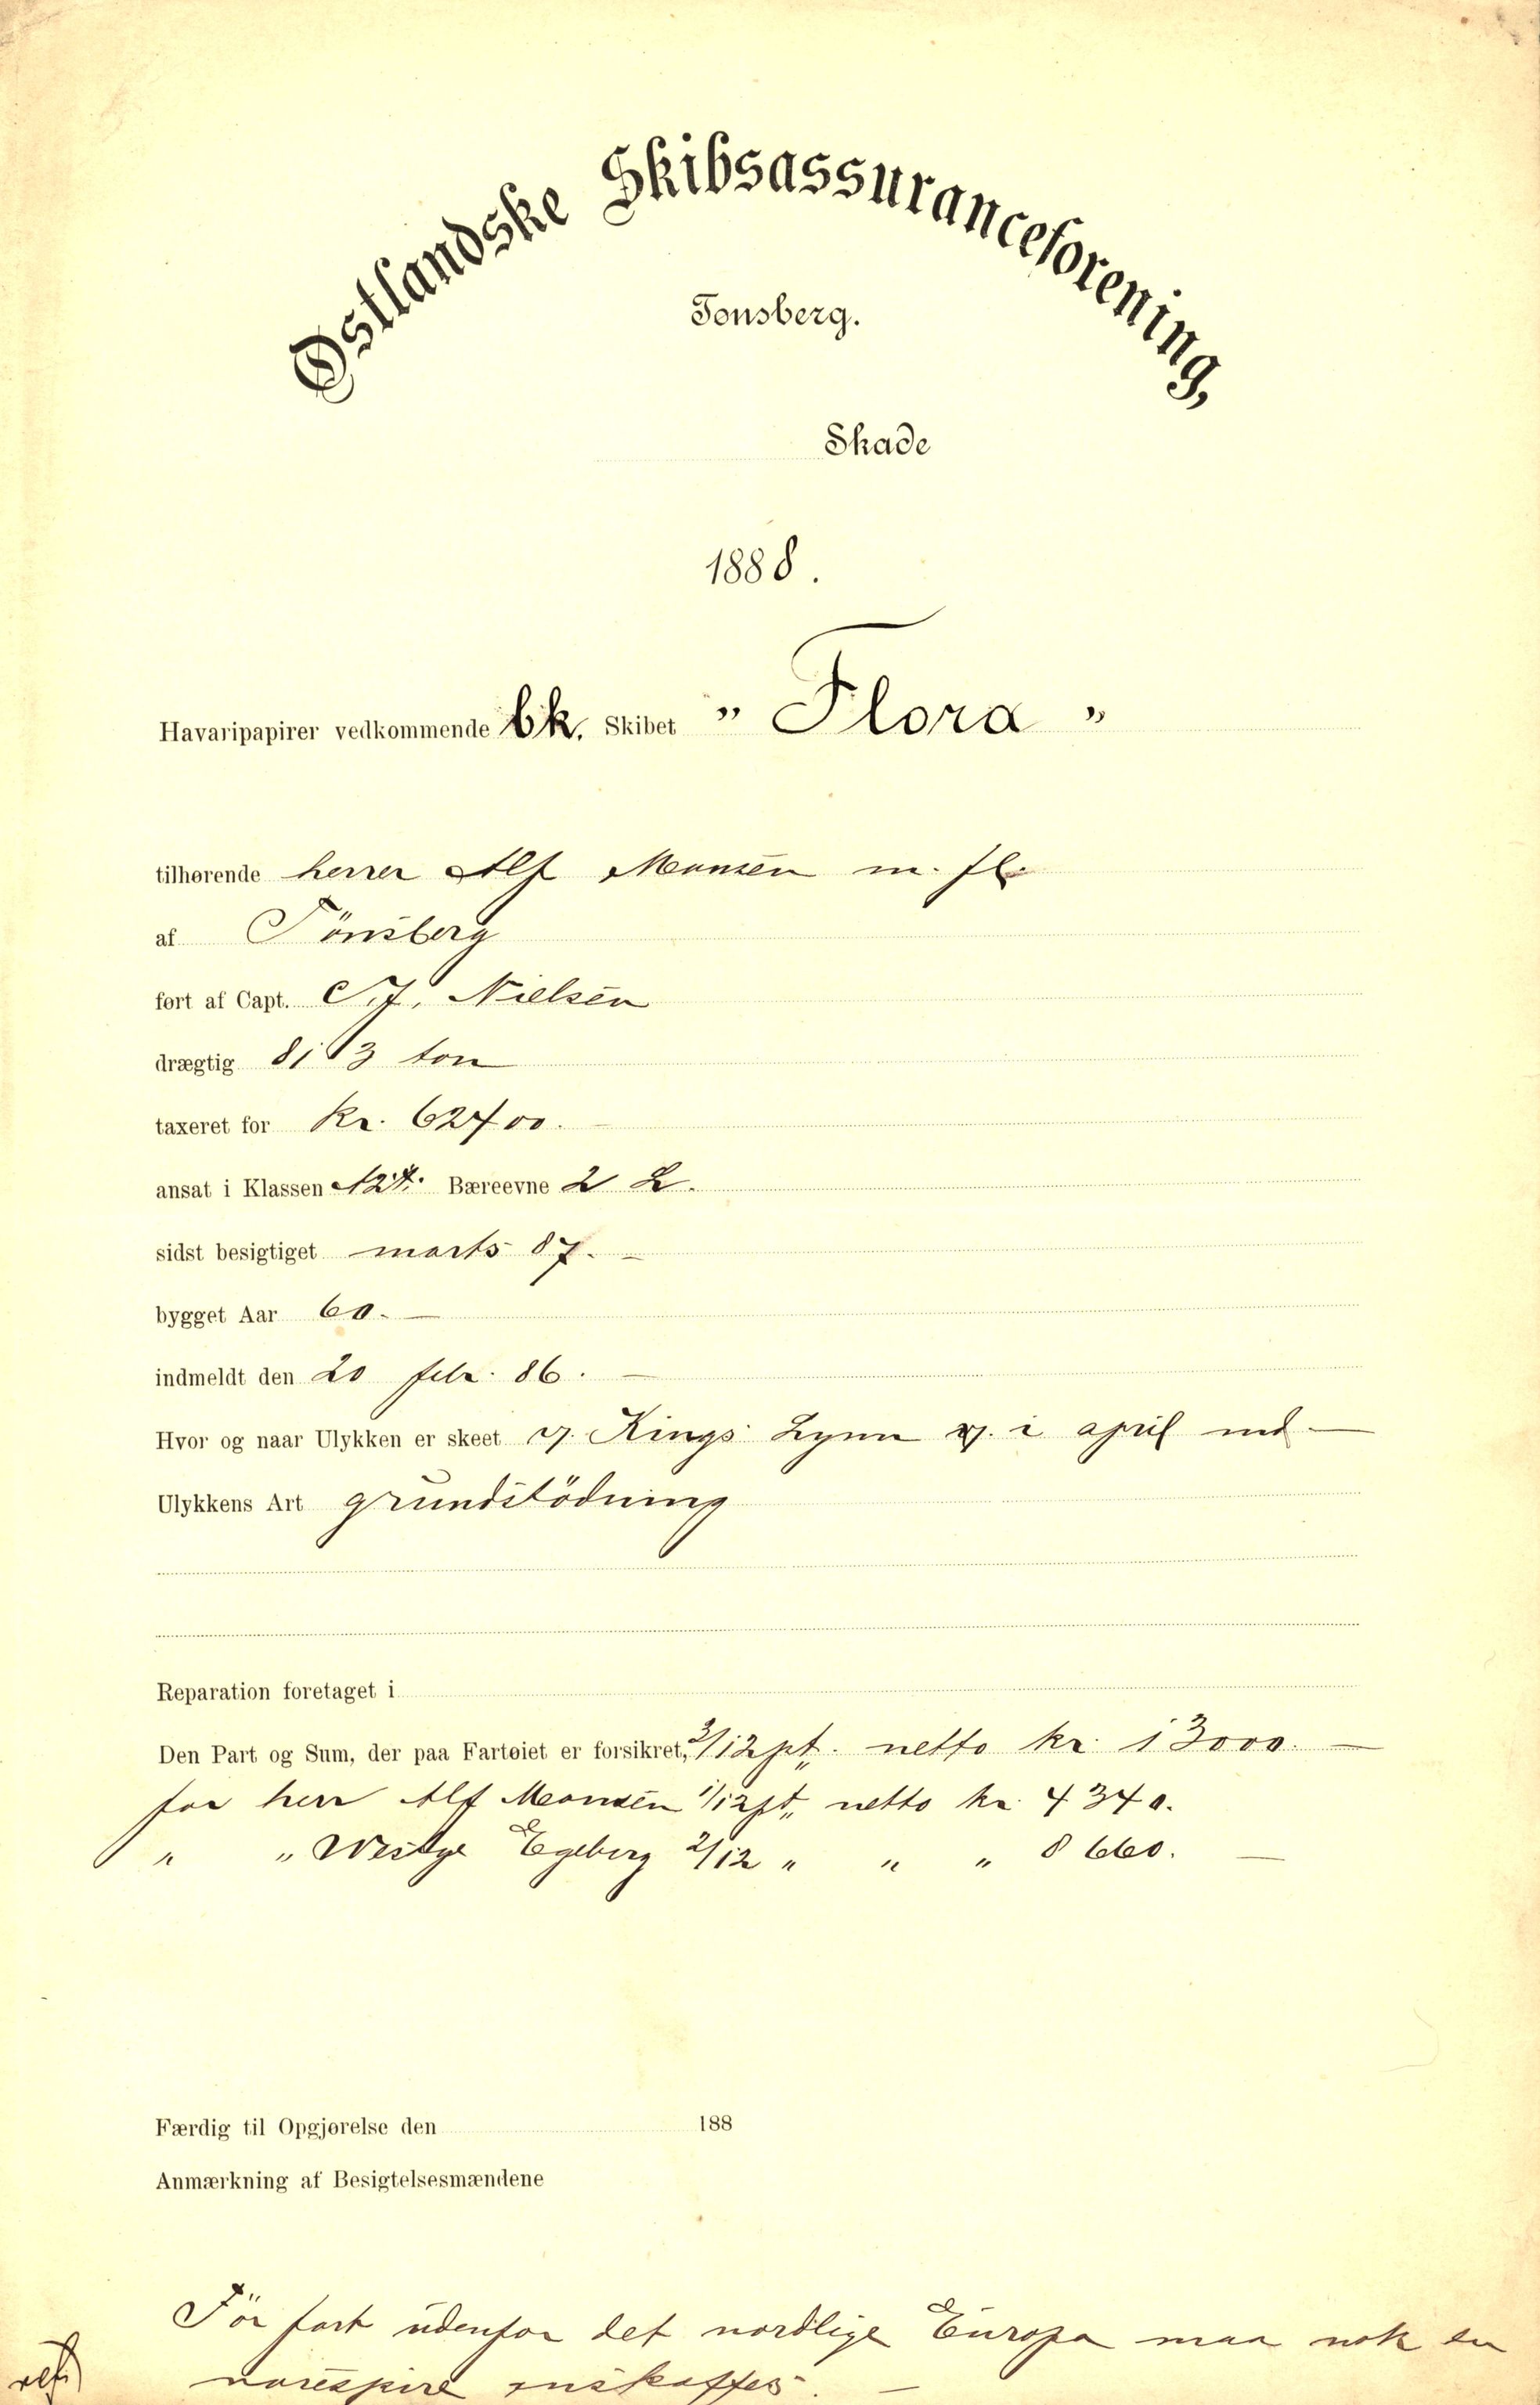 Østlandske Skibsassuranceforening,
Tønsberg.
Skade
1888.
Havaripapirer vedkommende bk. Skibet " Flora "
tilhørende herrer Alf Monsen m. fl.
af Tönsberg
ført af Capt. Nielsen
drægtig 813 ton
taxeret for Kr. 62400.
ansat i Klassen A2 Bæreevne 2 L.
sidst besigtiget marts 87.
bygget Aar 60.
indmeldt den 20 febr. 86.
Hvor og naar Ulykken er skeet v. Kings Lynn i april md
Ulykkens Art grundstödning
Reparation foretaget i
Den Part og Sum, der paa Fartøiet er forsikret, 3/12 pt. netto kr. 13000.
for herr Alf Monsen 1/12 pt. netto kr. 4340.
" " Westye Egeberg 2/12 " " " 8660.
Færdig til Opgjørelse den 188
Anmærkning af Besigtelsesmændene
För fart udenfor det nordlige Europa maa nok en